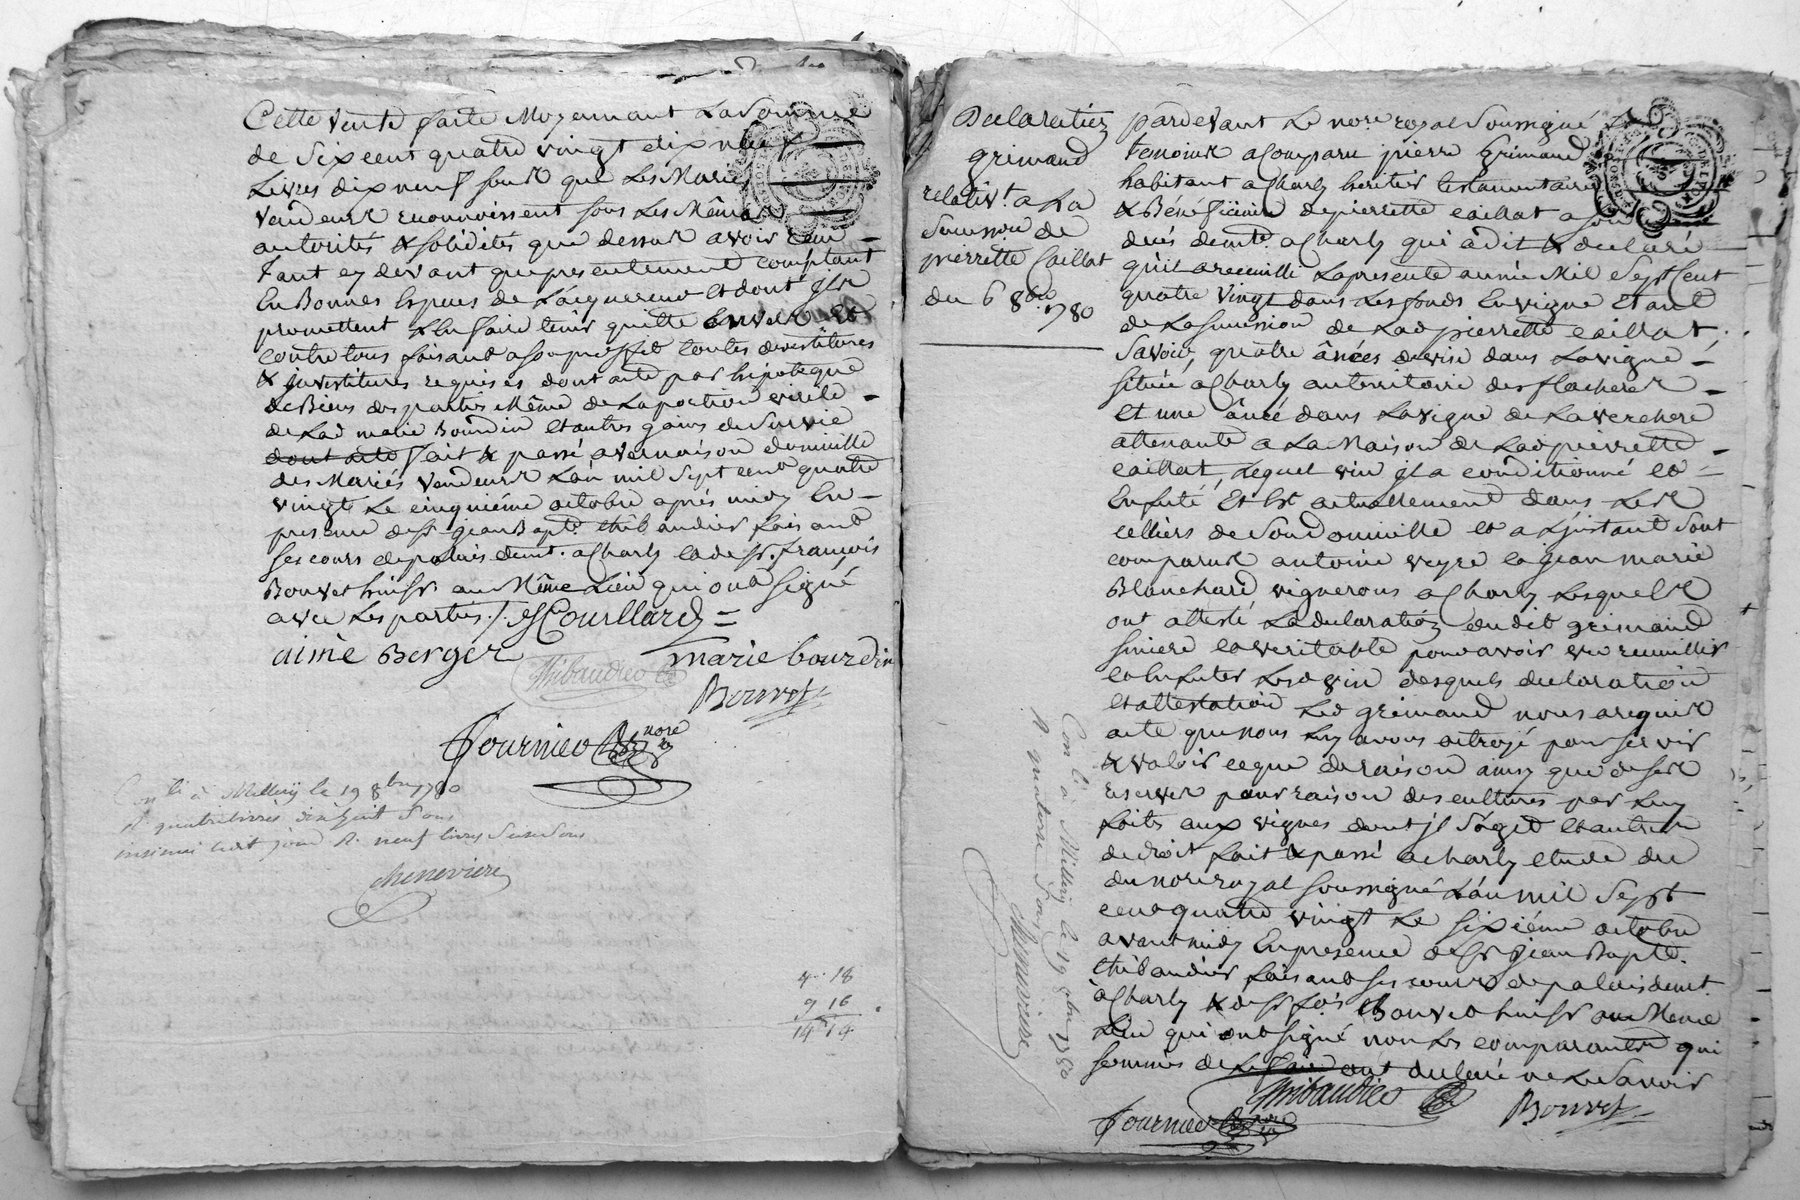 Cette vente faite Moyennant La Somme
de Six cent quatre vingt dix neuf
Livres dix neuf sous que Les Mariés
vendeurs reconnoissent sous Les Mêmes
autorités & solidités que dessus avoir reçu
tant cy devant que presentement comptant
En Bonnes Espèces de L'acquereur Et dont ils
promettent L'En faire tenir quitte Envers Et
contre tous faisant a son proffit toutes devestitures
& investitures requises dont acte par hipoteque
de Biens des parties Même de La portion virile
de Lad marie Bourdin et autres gains de Survie
dont acte fait & passé a vernaison domicille
des Mariés vendeurs L'an mil Sept cent quatre
vingt Le cinquième octobre après midy En
presence de Sr jean Bapte thibaudier faisant
ses cours de palais demt. a Charly et de Sr. françois
Bouvet huissr au Même Lieu qui ont signé
avec Les parties ./. Courllard
aimé Berger marie bourdin
Thibaudier
Bouvet
Fournier nore
Conlé à Millery le 19 8bre 1780
R. quatre livres dix huit Sous
insinué ledt jour R. neuf livres Seize Sous
Chenevière
4 18
9 16
14 14
Declaration
grimaud
relativt. a La
Succession de
pierrette Caillat
du 6 8bre 1780
pardevant Le nore royal Soussigné &
temoins a Comparu pierre Grimaud
habitant a Charly heritier testamentaire
& Bénéficiaire de pierrette caillat a son
decès demte. a Charly qui a dit & declaré
qu'il a recueilli La presente année Mil Sept Cent
quatre vingt dans Les fonds En vigne Etant
de La Succession de Lad pierrette caillat,
Savoir, quatre ânées de vin dans La vigne
située a Charly au territoire des flacheres
et une ânée dans La vigne de La verchere
attenante a La Maison de Lad pierrette
caillat, Lequel vin il a conditionné et
Enfuté Et Est actuellement dans Les
celliers de Son Domicille et a L'instant Sont
comparus antoine veyre et jean marie
Blanchard vignerons a Charly Lesquels
ont attesté La declaration dudit grimaud
sincere et veritable pour avoir vu recueillir
et Enfuter Led vin desquels declaration
et attestation Led grimaud nous a requis
acte que nous Luy avons octroyé pour servir
& valoir ce que de raison ainsy que de ses
reserves pour raison des cultures par Luy
faites aux vignes dont il S'agit et autres
de droit fait & passé a Charly etude du
du nore royal soussigné L'an mil Sept
cent quatre vingt Le sixième octobre
avant midy En presence de Sr jean Bapte.
thibaudier faisant ses cours de palais demt.
à Charly & de Sr fois Bouvet huissr au Meme
Lieu qui ont signé non Les comparants qui
sommés de Le faire ont declaré ne Le Savoir
Thibaudier
Bouvet
Fournier nore
Conlé à Millery le 19 8bre 1780
R. quatorze Sous
Chenevière